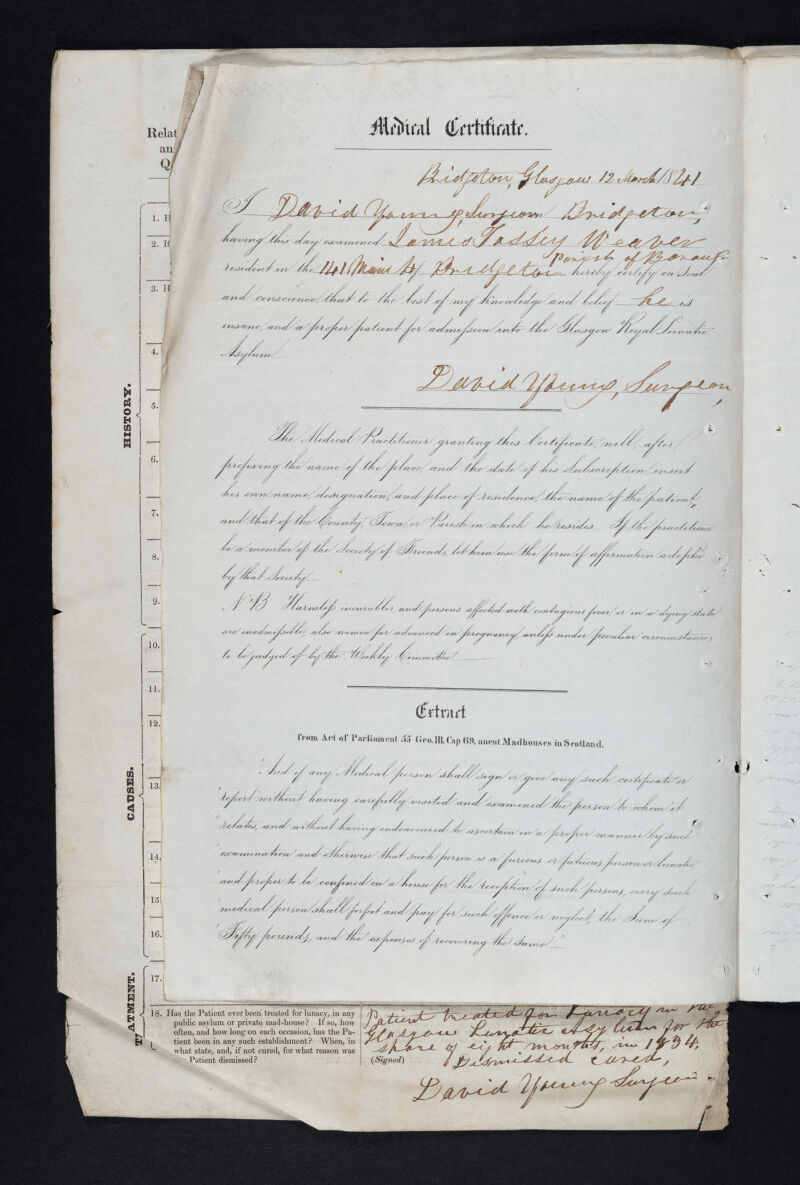 Medical Certificate.
Bridgeton, Glasgow 12 March 1841
I David Young, Surgeon Bridgeton,
having this day examined James Tassey Weaver
resident in the 141 Main St of Bridgeton Parish of Barony hereby certify on Soul
and conscience, that to the best of my knowledge and belief he is
insane, and a proper patient for admission into the Glasgow Royal Lunatic
Asylum
David Young, Surgeon,
The Medical Practitioner granting this Certificate, will, after
prefixing the name of the place, and the date of his Subscription, insert
his own name, designation, and place of residence, the name of the patient,
and that of the County, Town, or Parish in which he resides. If the practitioner
be a member of the Society of Friends, let him use the form of affirmation adopted
by that Society.
N.B. Harmless incurables, and persons affected with contagious fever, or in a dying state
are inadmissible, also women far advanced in pregnancy, unless under peculiar circumstances,
to be judged of by the Weekly Committee
Extract
from Act of Parliament 55 Geo. III. Cap 69, anent Madhouses in Scotland.
"And if any Medical person shall sign or give any such certificate or
"report without having carefully visited and examined the person to whom it
"relates, and without having endeavoured to ascertain in a proper manner by such
"examination and otherwise that such person is a furious or fatuous person or lunatic,
"and proper to be confined in a house for the reception of such persons, every such
"medical person shall forfeit and pay for such offence or neglect, the Sum of
"Fifty pounds, and the expenses of recovering the same"
Relat
an
Q
HISTORY.
1. H
2. If
3. H
4.
5.
6.
7.
8.
9.
CAUSES.
10.
11.
12.
13.
14.
15
16.
TREATMENT.
17.
18. Has the Patient ever been treated for lunacy, in any
public asylum or private mad-house? If so, how
often, and how long on each occasion, has the Pa-
tient been in any such establishment? When, in
what state, and, if not cured, for what reason was
Patient dismissed?
Patient treated for Lunacy in the
Glasgow Lunatic asylum for the
space of eight months, in 1834.
(Signed) Dismissed cured,
David Young Surgeon